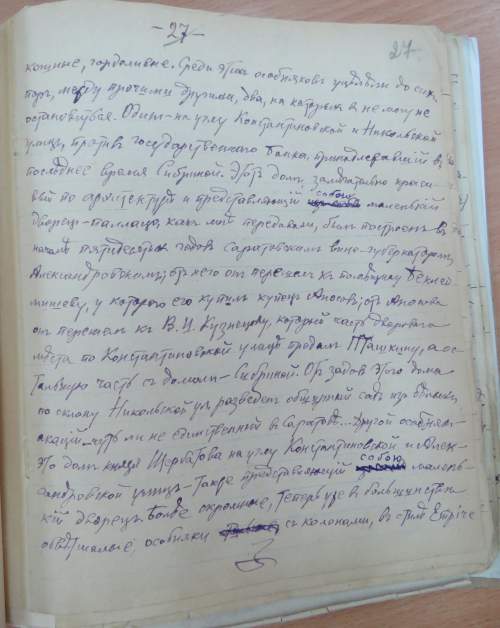 - 27 -
27.
кощные, горделивые. Среди этих особняковъ уцѣлѣли до сих
пор, между прочими другими, два, на которых я не могу не
остановиться. Один - на углу Константиновской и Никольской
улиц, против государственного банка, принадлежавший в
последнее время Сибриной. Этотъ домъ, замѣчательно краси-
вый по архитектурѣ и представляющій собою маленькій
дворец-палаццо, какъ мнѣ передавали, был построенъ въ
началѣ пятидесятых годовъ Саратовским вице-губернаторомъ,
Александровскимъ; отъ него он перешел къ помѣщику Бекле-
мишеву, у которого его купилъ купец Аносов; от Аносова
он перешел къ В. И. Кузнецову, который часть дворового
мѣста по Константиновской улицѣ продал Ташкину, а ос-
тальную часть съ домом - Сибриной. От задов этого дома
по склону Никольской ул разведен обширный садъ из бѣлых
акацій - чуть ли не единственный в Саратовѣ... Другой особняк -
это домъ князя Щербатова на углу Константиновской и Алек-
сандровской улиц - также представляющій собою малень-
кій дворец. Болѣе скромные, теперь уже в большинстве
обвѣтшалые, особняки съ колонами, в стилѣ